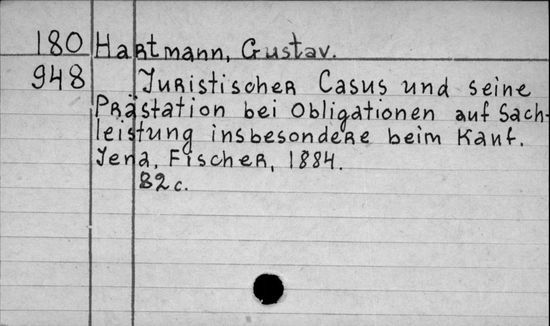 180 Hartmann, Gustav.
948 Juristischer Casus und seine
Prästation bei Obligationen auf Sach-
leistung insbesondere beim Kauf.
Jena, Fischer, 1884.
82 c.